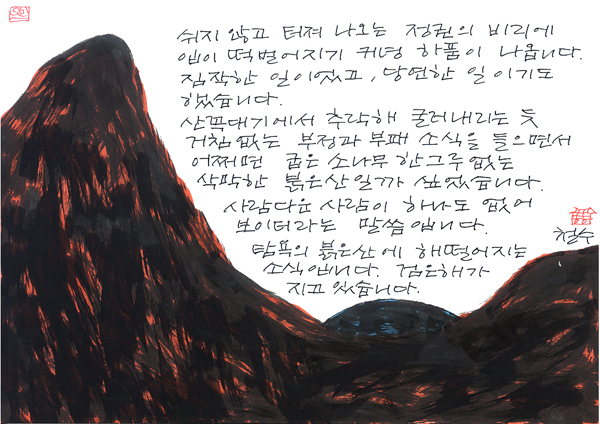 쉬지 않고 터져 나오는 정권의 비리에
입이 떡벌어지기 커녕 하품이 나옵니다.
짐작한 일이었고, 당연한 일이기도
했습니다.
산꼭대기에서 추락해 굴러내리는 듯
거침없는 부정과 부패 소식을 들으면서
어쩌면 굽은 소나무 한그루 없는
삭막한 붉은산일까 싶었습니다.
사람다운 사람이 하나도 없어
보이더라는 말씀입니다.
탐욕의 붉은산에 해떨어지는
소식입니다. 검은해가
지고 있습니다.
철수